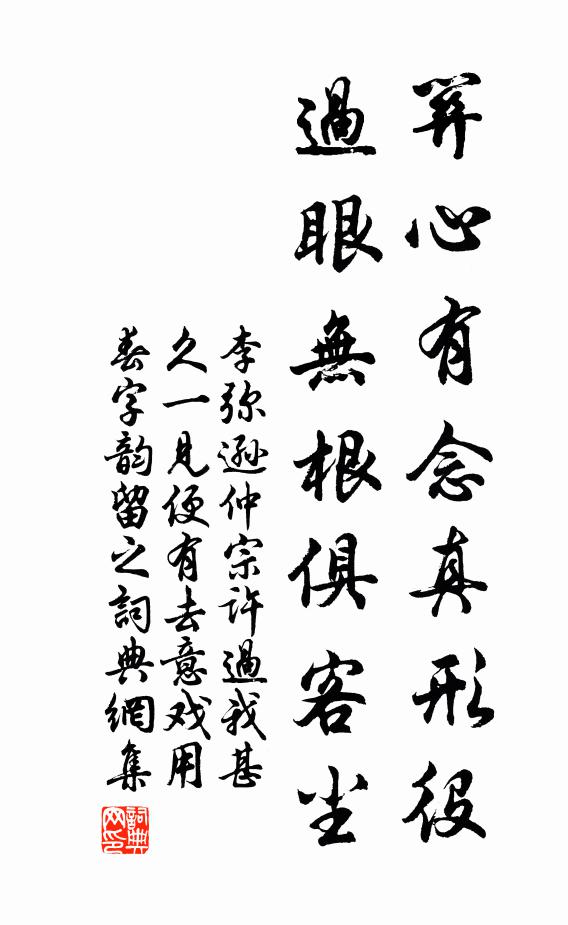 关心有念真形役
過眼無根俱客尘
李弥遜仲宗许過我甚
久一見便有去意戏用
春字韵留之詞典網集
詞典网印